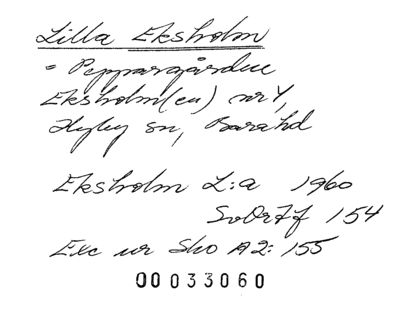 Lilla Eksholm
= Peppargården
Eksholm(en) nr 4,
Hyby sn, Bara hd
Eksholm L:a 1960
SvOrt 7f 154
Exc ur Sko A2: 155
00033060